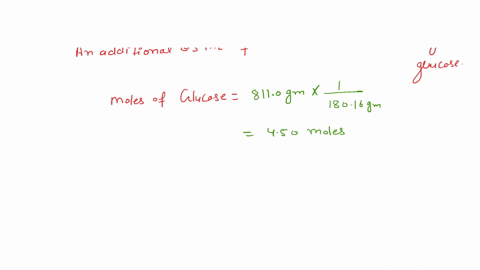 An additional
glucose.
Moles of Glucose = 811.0 gm × 1 / 180.16 gm
= 4.50 moles